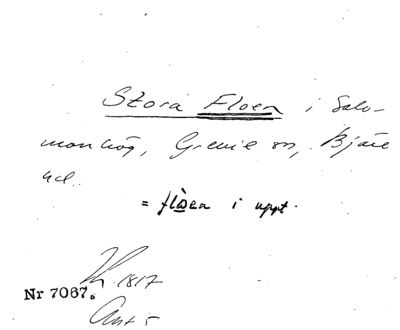 Stora Floen i Salo-
monhög, Grevie sn, Bjäre
hd.
= flåen i uppt.
1817
Nr 7067.
Ant 5